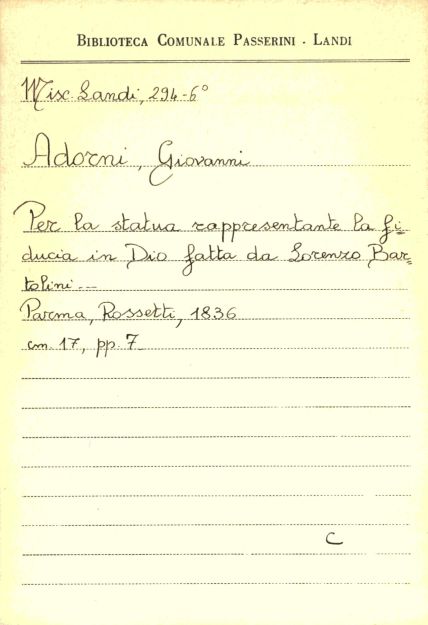 BIBLIOTECA COMUNALE PASSERINI - LANDI
Misc. Landi, 294-6°
Adorni, Giovanni
Per la statua rappresentante la fi-
ducia in Dio fatta da Lorenzo Bar=
tolini...
Parma, Rossetti, 1836
cm. 17, pp. 7
C